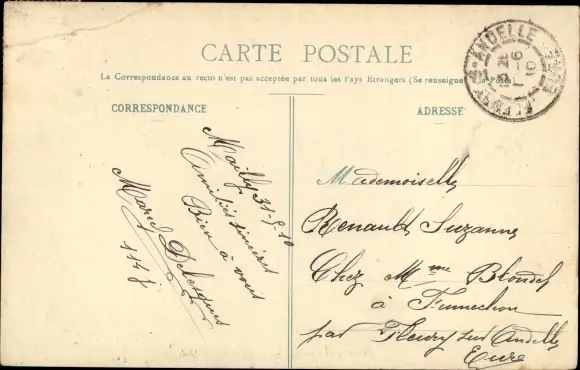 CARTE POSTALE
La Correspondance au recto n'est pas acceptée par tous les Pays Etrangers (Se renseigner à la Poste)
CORRESPONDANCE
ADRESSE
Mailly 31-5-10
Amitiés sincères
Bien à vous
Marcel
114 j
Mademoiselle
Renault Suzanne
Chez Mme Blondel
à
par Fleury sur Andelle
Eure
ANDELLE
EURE